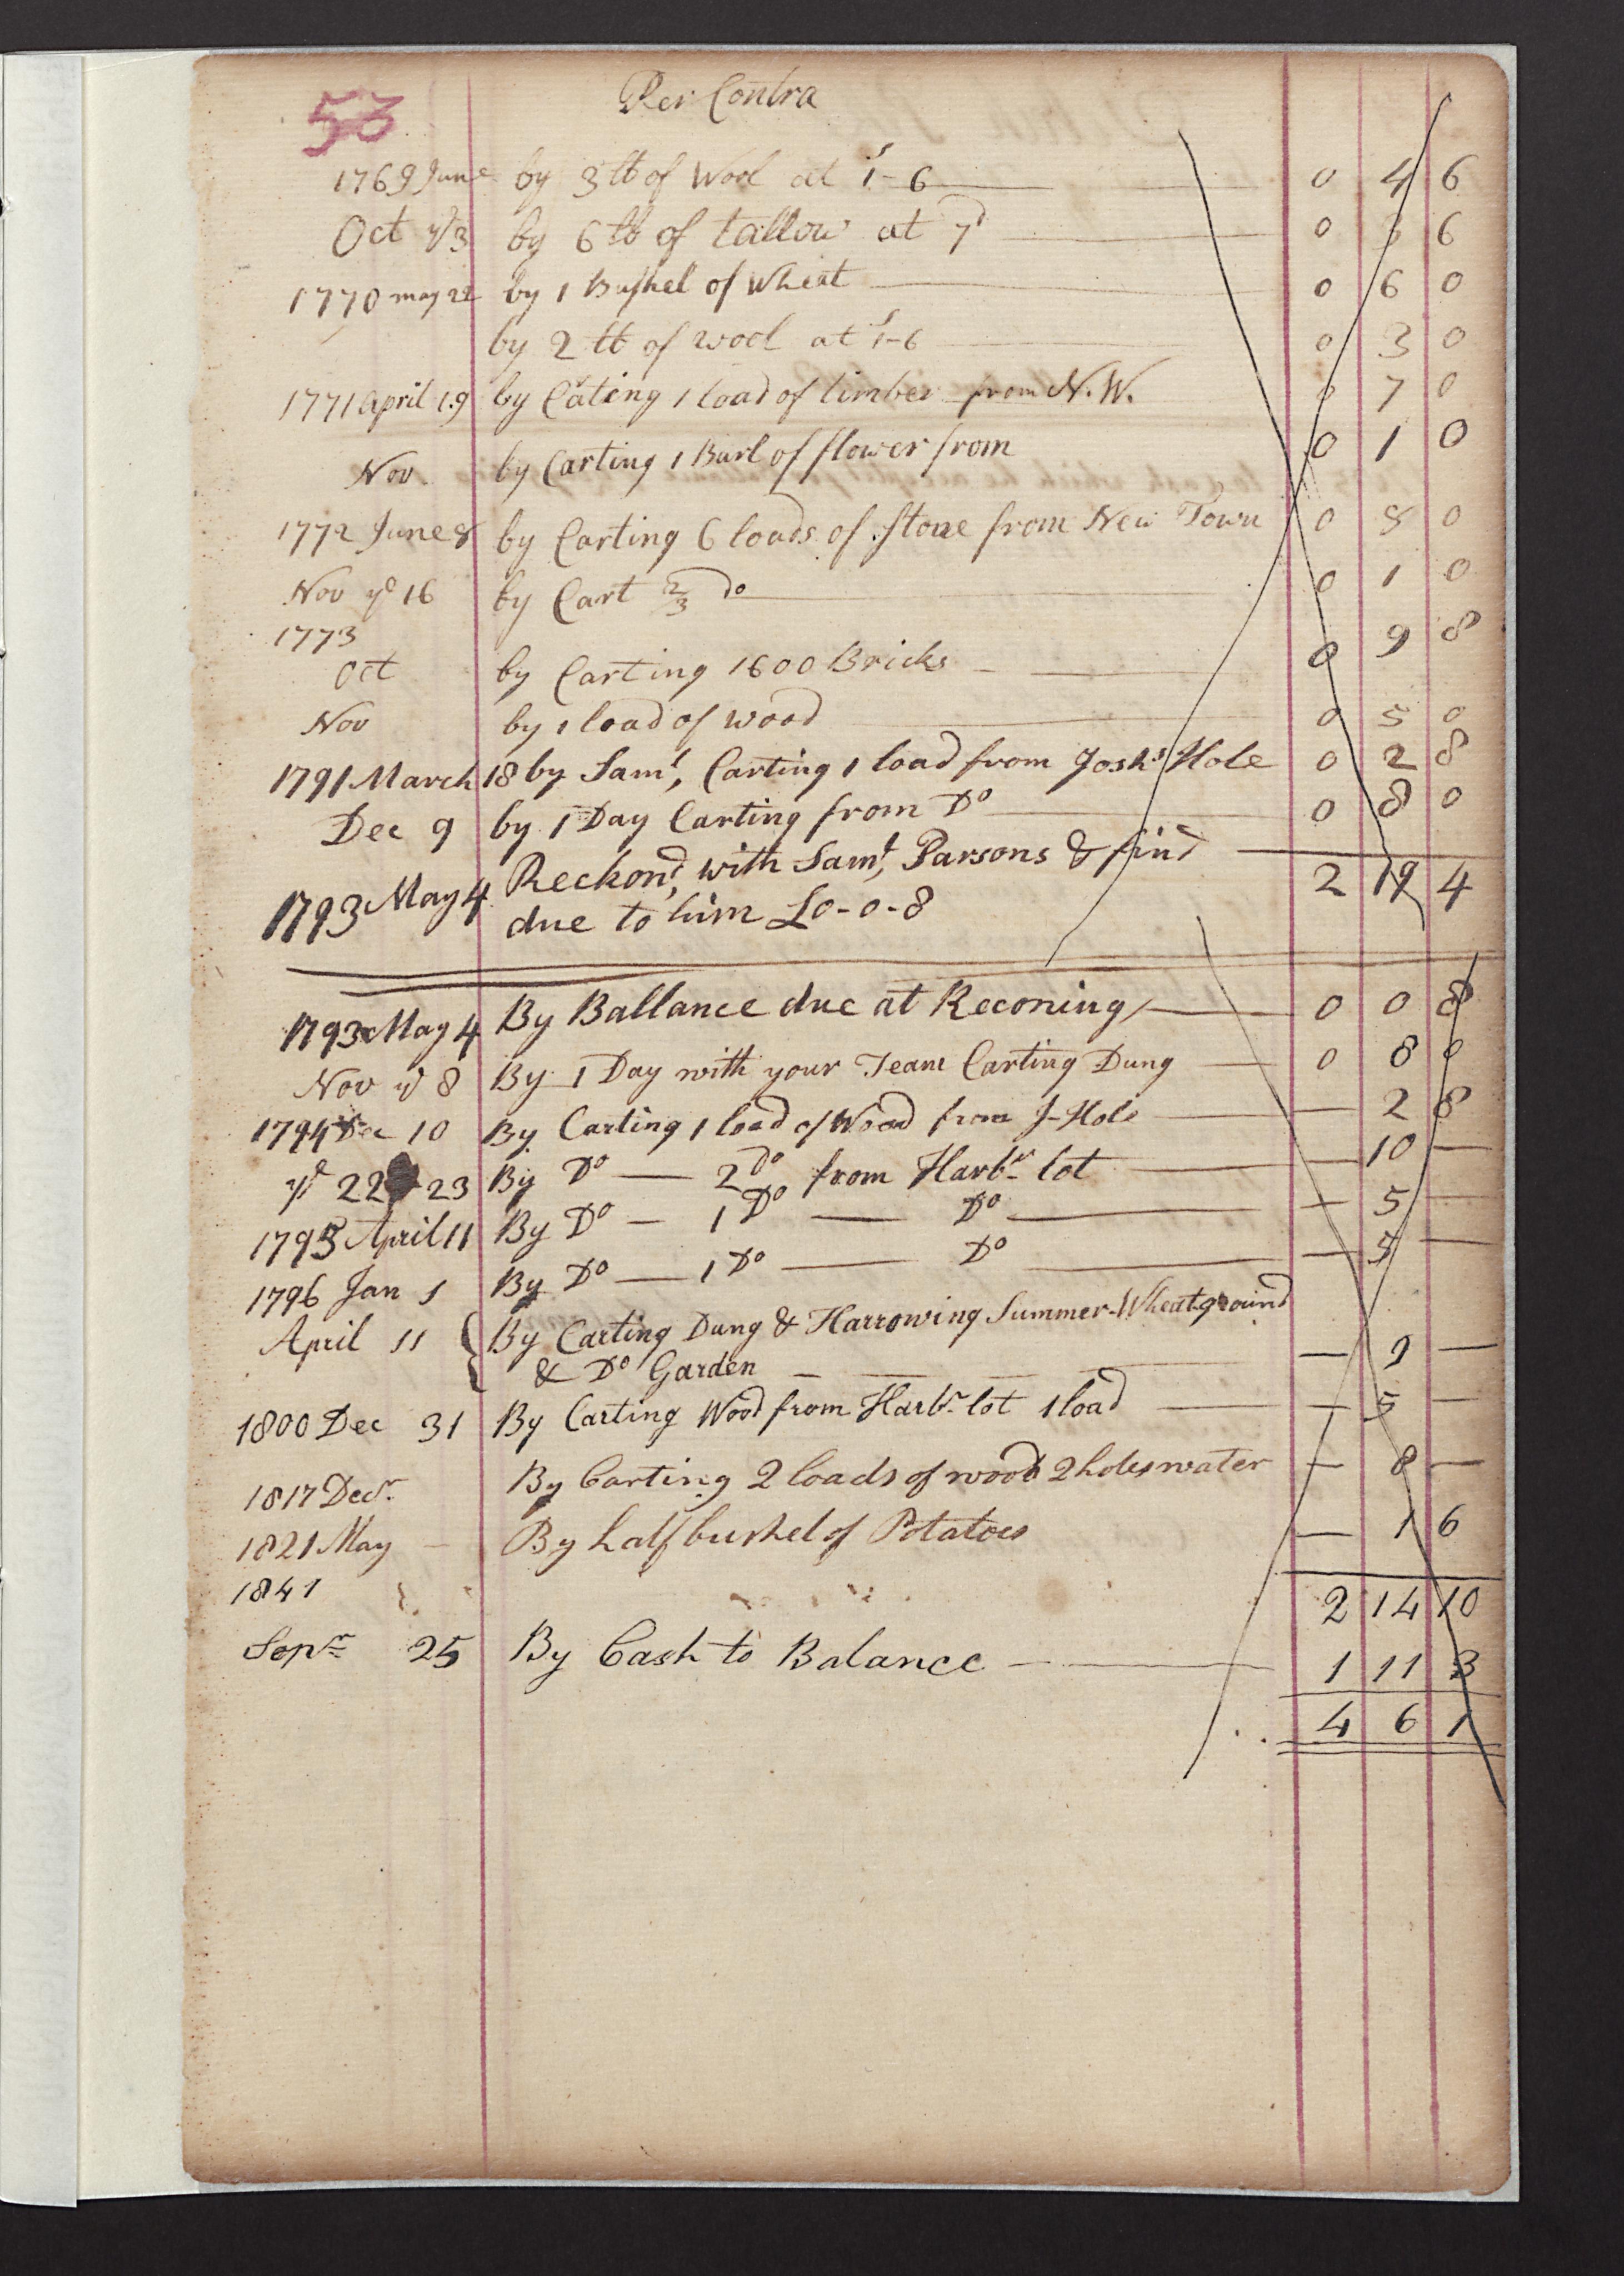 53
Per Contra
1769 June by 3 lb of Wool at 1s-6 0 4 6
Oct ye 3 by 6 lb of tallow at 7d 0 3 6
1770 may 22 by 1 Bushel of Wheat 0 6 0
by 2 lb of wool at 1s-6 0 3 0
1771 april 19 by Cating 1 load of timber from N.W. 0 7 0
Nov by Carting 1 Barl of flower from 0 1 0
1772 June 8 by Carting 6 loads of stone from New Town 0 8 0
Nov ye 16 by Cart 2/3 Do 0 1 0
1773
Oct by Carting 1600 Bricks 0 9 8
Nov by 1 load of wood 0 5 0
1791 March 18 by Saml, Carting 1 load from Joshs Hole 0 2 8
Dec 9 by 1 Day Carting from Do 0 8 0
1793 May 4 Reckond, with Saml, Parsons & find 2 19 4
due to him £0-0-8
1793 May 4 By Ballance due at Reconing 0 0 8
Nov ye 8 By 1 Day with your Team Carting Dung 0 8 0
1794 Dec 10 By Carting 1 load of Wood from J-Hole — 2 8
ye 22 23 By Do — 2 do from Harbr lot — 10 —
1795 April 11 By Do — 1 Do — Do — 5 —
1796 Jan 1 By Do — 1 Do — Do — 5 —
April 11 { By Carting Dung & Harrowing Summer-Wheat-ground
& Do Garden — 9 —
1800 Dec 31 By Carting Wood from Harbr lot 1 load — 5 —
1817 Decr By Carting 2 loads of wood 2 holes water — 8 —
1821 May By half bushel of Potatoes — 1 6
1841 2 14 10
Sepr 25 By Cash to Balance 1 11 3
4 6 1